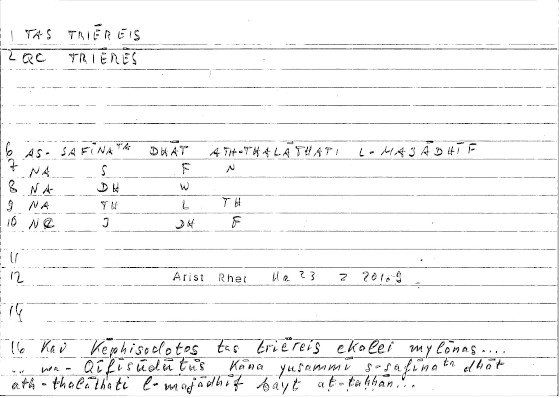 1 TAS TRIĒREIS
2 QC TRIĒRĒS
6 AS- SAFĪNATA DHĀT ATH-THALĀTHATI L-MAJĀDHĪF
7 NA S F N
8 NA DH W
9 NA TH L TH
10 NC J DH F
11
12 Arist Rhet Ua 23 2
14
16 Kai Kēphisodotos tas triēreis ekalei mylōnas....
.. wa- Qīfisūdūtūs kāna yusammī s-safīnata dhāt
ath-thalāthati l-majādhīf bayt at-taḥḥān...